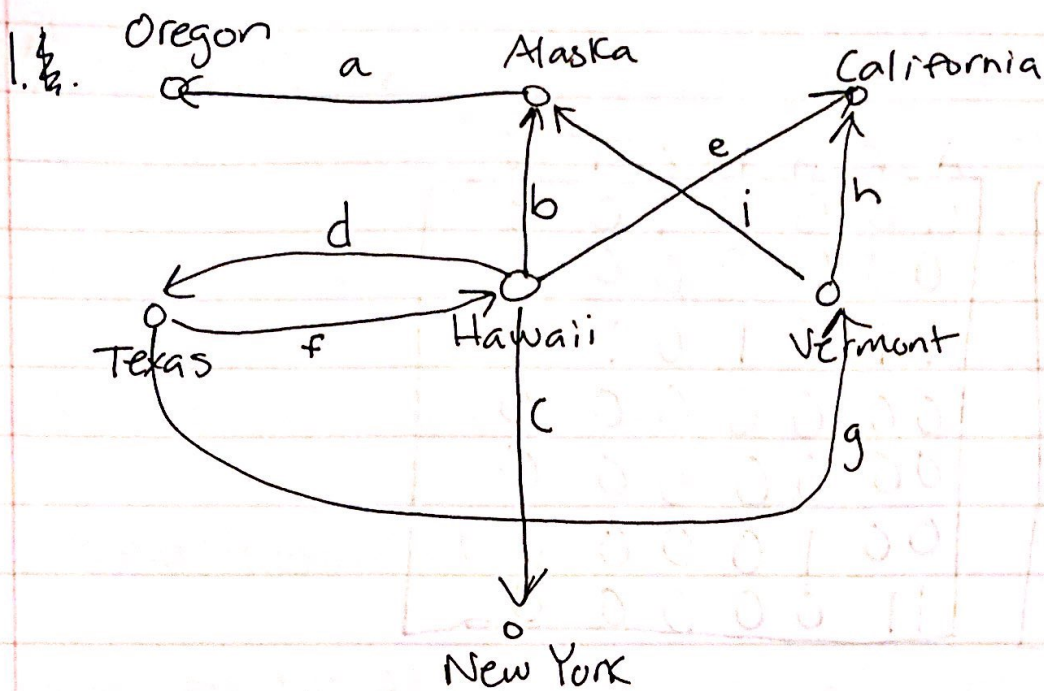 1.
Oregon
a
Alaska
California
e
b
i
h
d
f
Texas
Hawaii
Vermont
C
g
New York